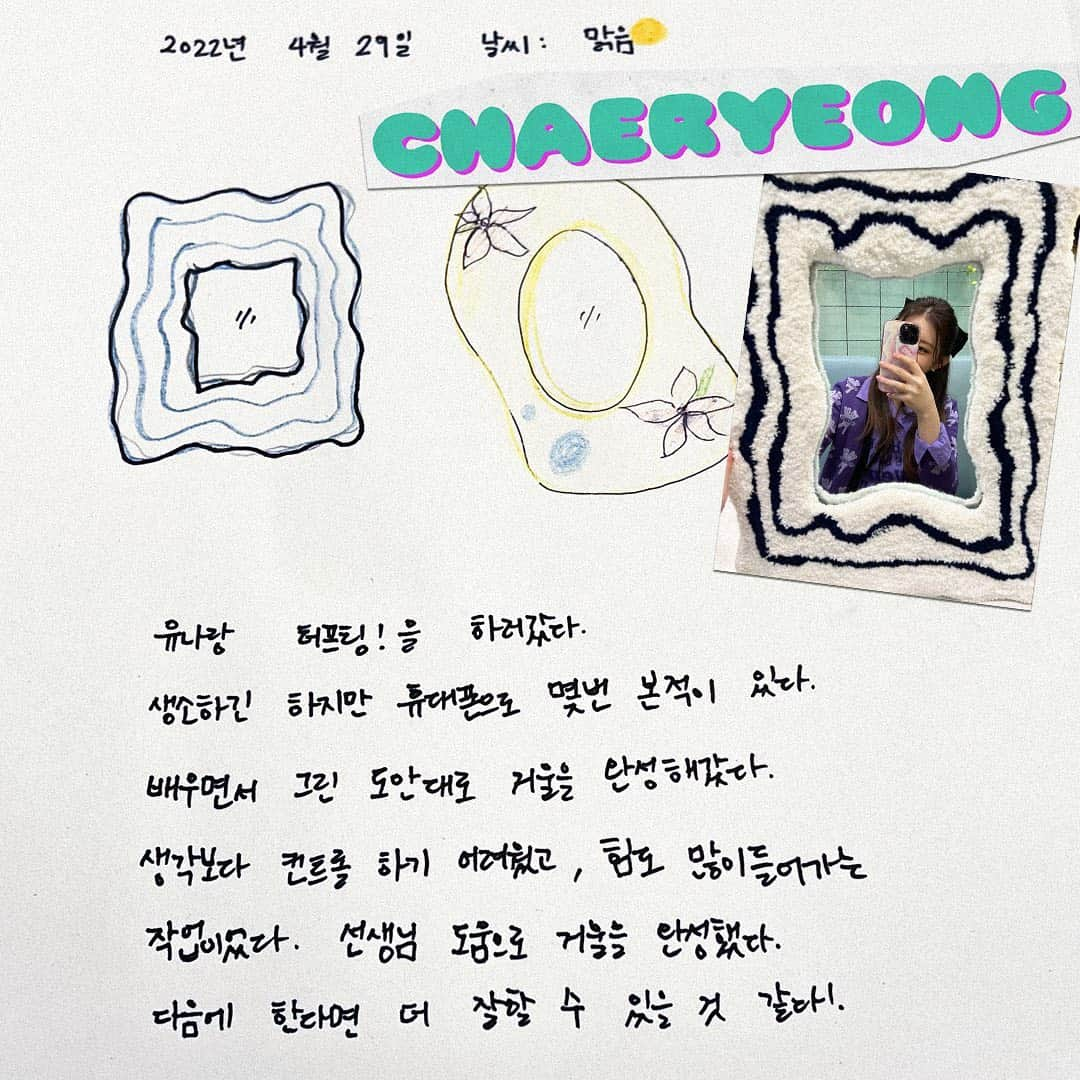 2022년 4월 29일 날씨: 맑음
CHAERYEONG
유나랑 터프팅!을 하러갔다.
생소하긴 하지만 휴대폰으로 몇번 본적이 있다.
배우면서 그린 도안대로 거울을 완성해갔다.
생각보다 컨트롤 하기 어려웠고, 힘도 많이들어가는
작업이었다. 선생님 도움으로 거울을 완성했다.
다음에 한다면 더 잘할 수 있을 것 같다!.